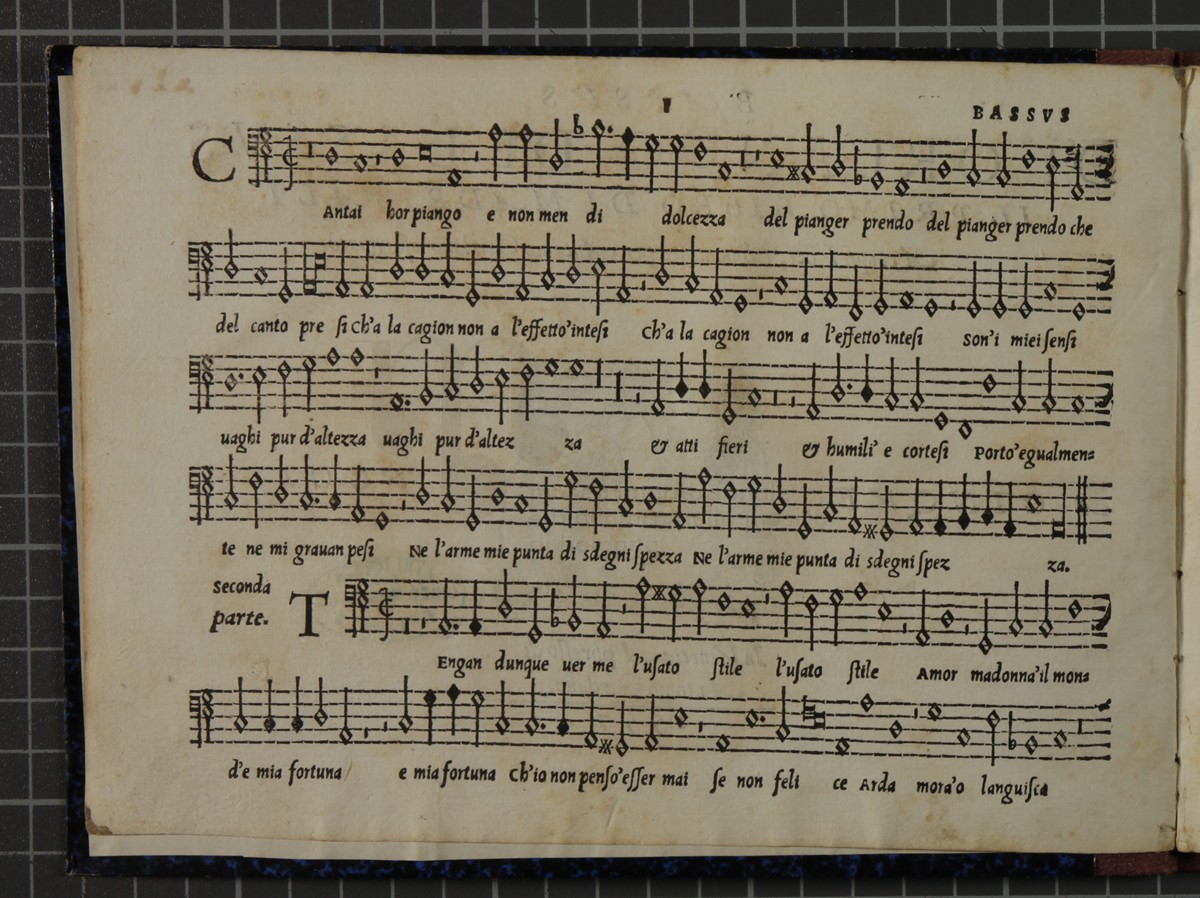 V
BASSVS
CAntai hor piango e non men di dolcezza del pianger prendo del pianger prendo che
del canto pre ſi ch'a la cagion non a l'effetto'inteſi Ch'a la cagion non a l'effetto'inteſi Son'i miei ſenſi
uaghi pur d'altezza uaghi pur d'altez za & atti fieri & humili' e corteſi Porto'egualmen=
te ne mi grauan peſi Ne l'arme mie punta di sdegni ſpezza Ne l'arme mie punta di sdegni ſpez za.
seconda
parte.
TEngan dunque uer me l'uſato ſtile l'uſato ſtile Amor madonna'il mon=
d'e mia fortuna e mia fortuna Ch'io non penſo'eſſer mai ſe non feli ce Arda mora'o languiſca